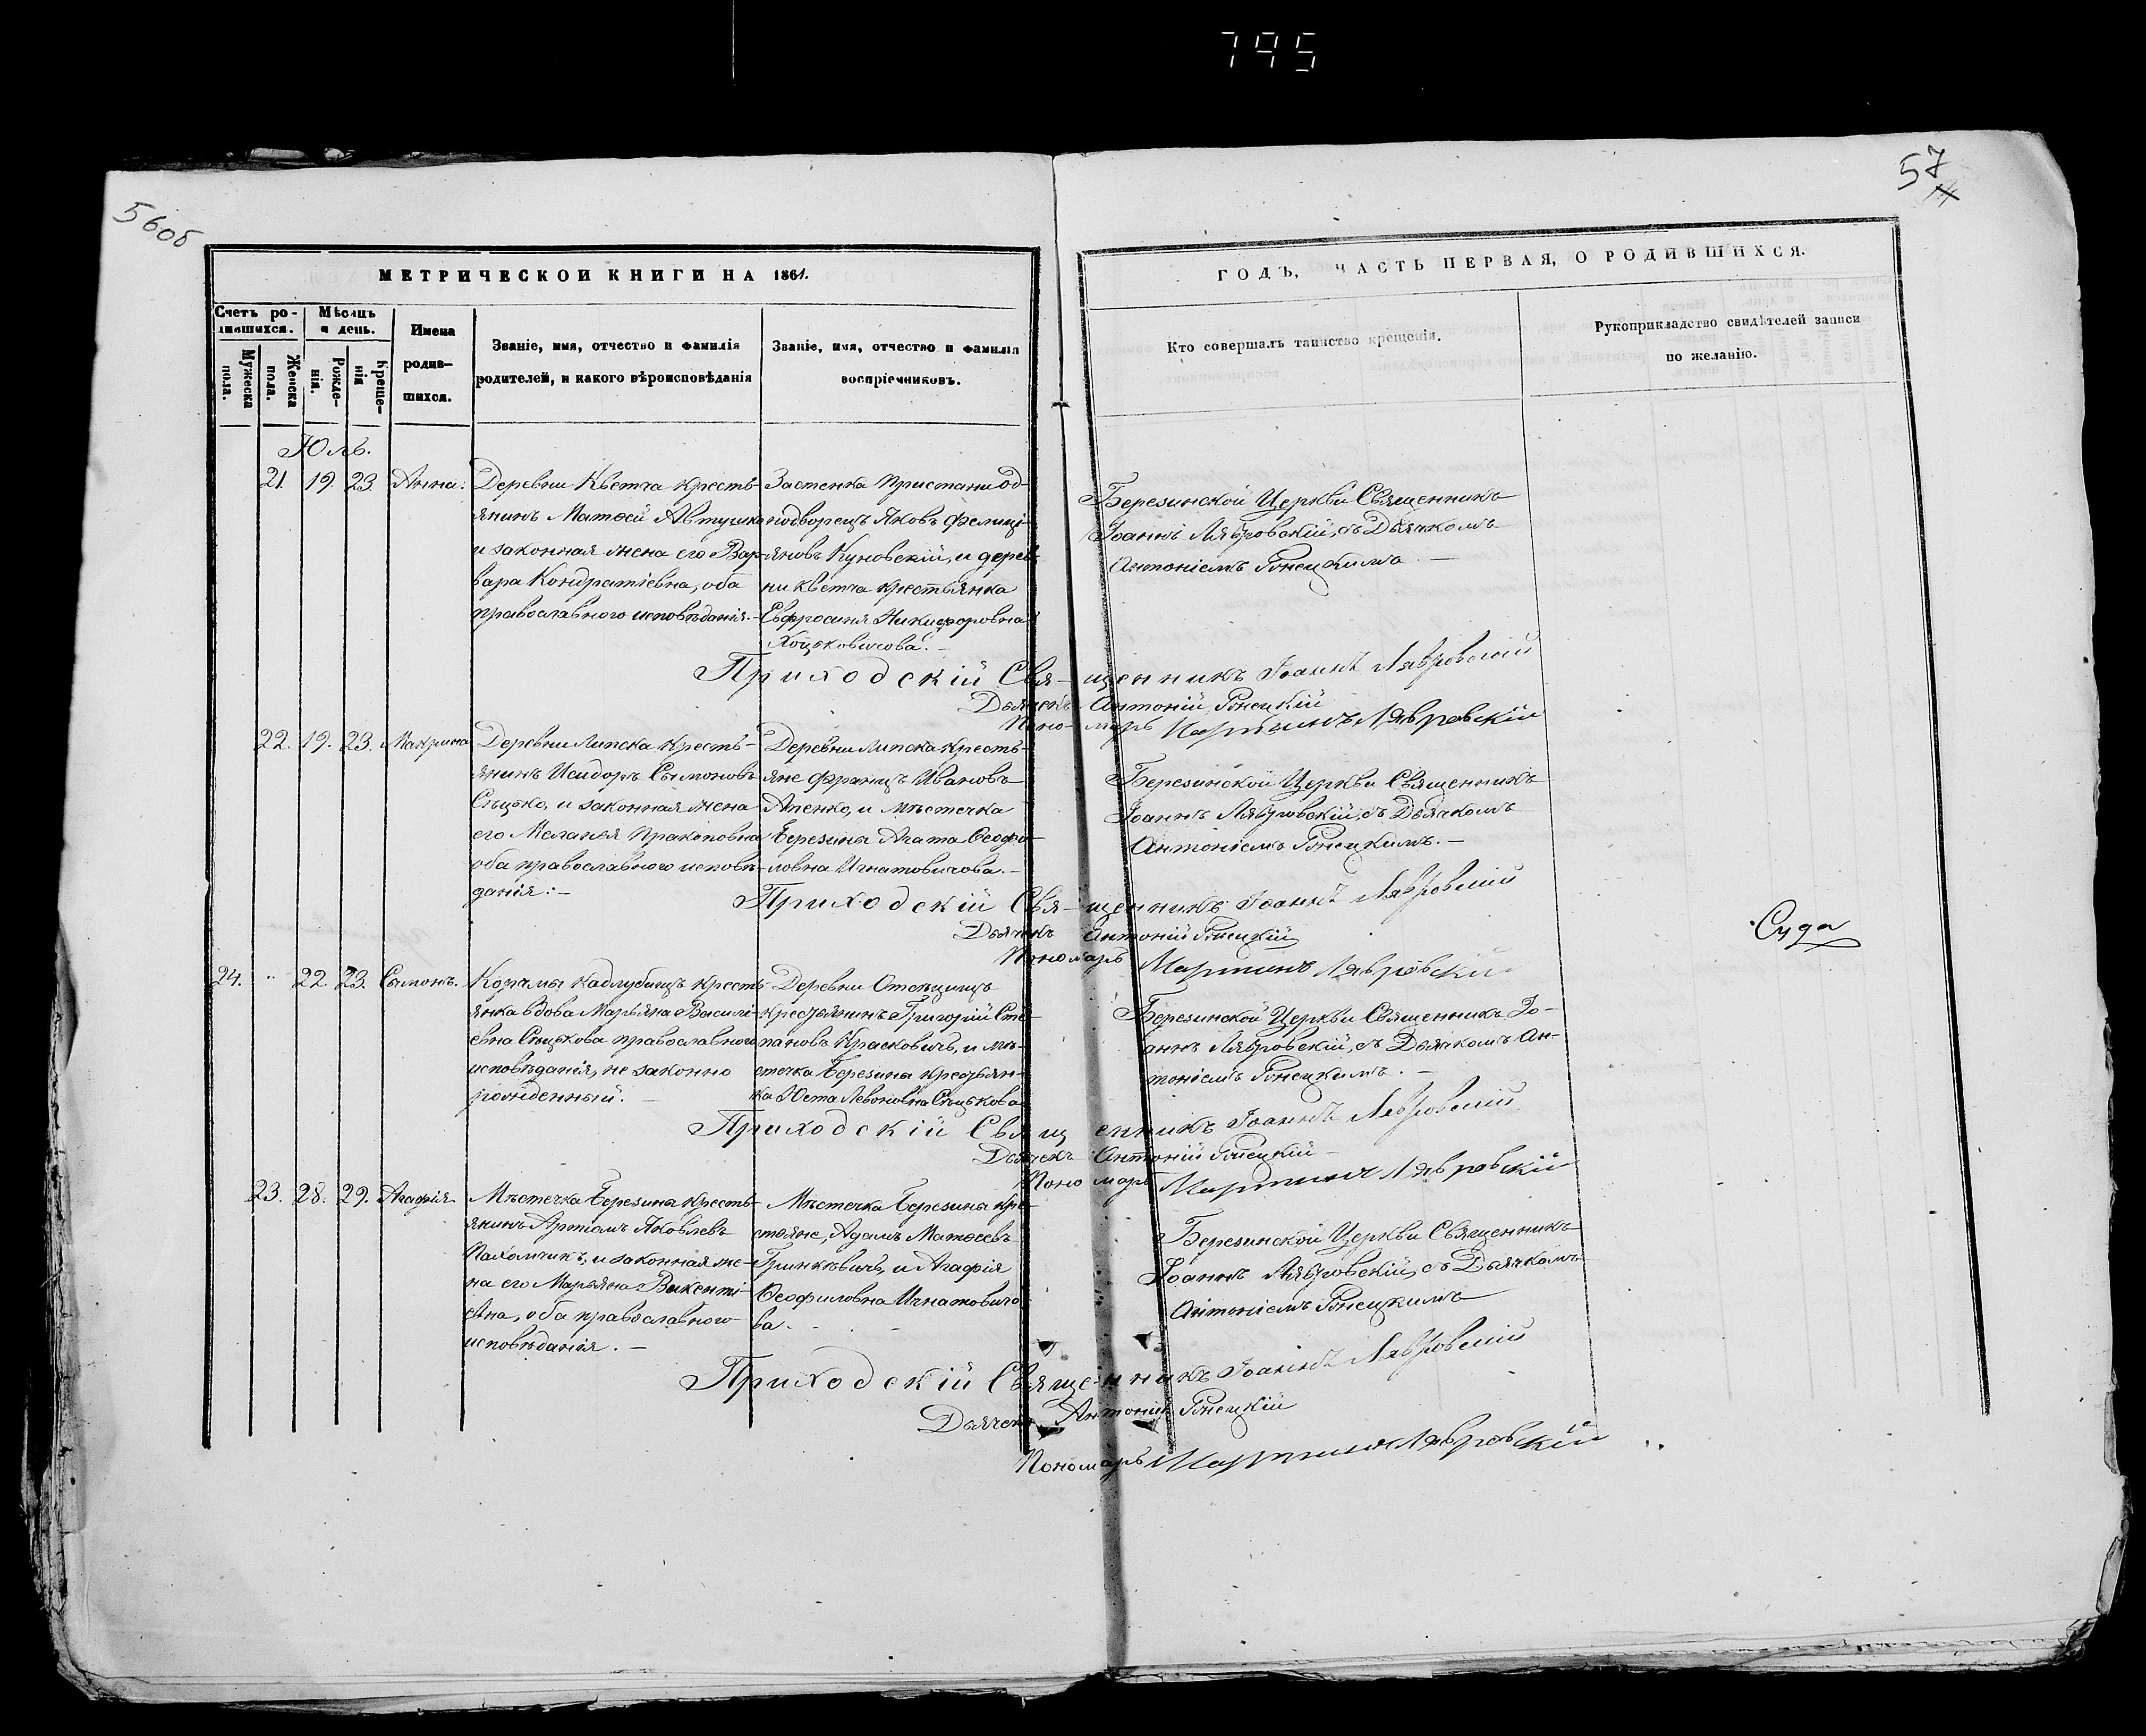 795
56об
57
МЕТРИЧЕСКОЙ КНИГИ НА 1861.
ГОДЪ, ЧАСТЬ ПЕРВАЯ, О РОДИВШИХСЯ.
Счетъ ро-
дившихся.
Мужеска
пола.
Женска
пола.
Мѣсяцъ
и день.
Рожде-
нія.
Креще-
нія
Имена
родив-
шихся.
Званіе, имя, отчество и фамилія
родителей, и какого вѣроисповѣданія
Званіе, имя, отчество и фамилія
воспріемниковъ.
Кто совершалъ таинство крещенія.
Рукоприкладство свидѣтелей записи
по желанію.
Юль.
21. 19. 23. Анна.
Деревни Кветча кресть-
янинъ Матѳей Автушко
и законная жена его Вар-
вара Кондратіевна, оба
православного исповѣданія.
Застенка Пристани од-
нодворецъ Яковъ Фелиці-
яновъ Куновскій, и дерев-
ни Кветча крестьянка
Евфросиня Никифоровна
Хоцьковичова.
Березинской Церкви Священникъ
Іоаннъ Лявровскій, съ Дьячкомъ
Антоніемъ Рʼонецкимъ.
Приходскій Священникъ Іоаннъ Лявровскій
Дьячекъ Антоній
Пономарь Мартинъ Лявровскій
22. 19. 23. Макрина
Деревни Липска кресть-
янинъ Исидоръ Сымоновъ
Сѣцько, и законная жена
его Меланья Пракоповна
оба православного исповѣ-
данія.
Деревни Липска кресть-
яне Францъ Ивановъ
Апенко, и мѣстечка
Березина Агата Ѳеофи-
ловна Игнатовичова.
Березинской Церкви Священникъ
Іоаннъ Лявровскій, съ Дьячкомъ
Антоніемъ
Приходскій Священникъ Іоаннъ Лявровскій
Дьячекъ Антоній
Пономарь Мартинъ Лявровскій
Суда
24. " 22. 23. Сымонъ.
Корчмы Кадлубищъ кресть-
янка вдова Марьяна Василі-
евна Сѣцькова православного
исповѣданія, не законно
рожденный.
Деревни Отсѣцищъ
крестьянинъ Григорій Сте-
пановъ Красковичъ, и мѣ-
стечка Березина крестьян-
ка Юста Левоновна Сѣцькова
Березинской Церкви Священникъ Іо-
аннъ Лявровскій, съ Дьячкомъ Ан-
тоніемъ
Приходскій Священникъ Іоаннъ Лявровскій
Дьячекъ Антоній
Пономарь Мартинъ Лявровскій
23. 28. 29. Агафія.
Мѣстечка Березина кресть-
янинъ Артіомъ Яковлевъ
Пахомчикъ, и законная же-
на его Марьяна Викенті-
евна, оба православного
исповѣданія.
Мѣстечка Березина кре-
стьяне, Адамъ Матѳеевъ
Гринкѣвичъ, и Агафія
Ѳеофиловна Игнатовичо-
ва.
Березинской Церкви Священникъ
Іоаннъ Лявровскій, съ Дьячкомъ
Антоніемъ
Приходскій Священникъ Іоаннъ Лявровскій
Дьячекъ Антоній
Пономарь Мартинъ Лявровскій